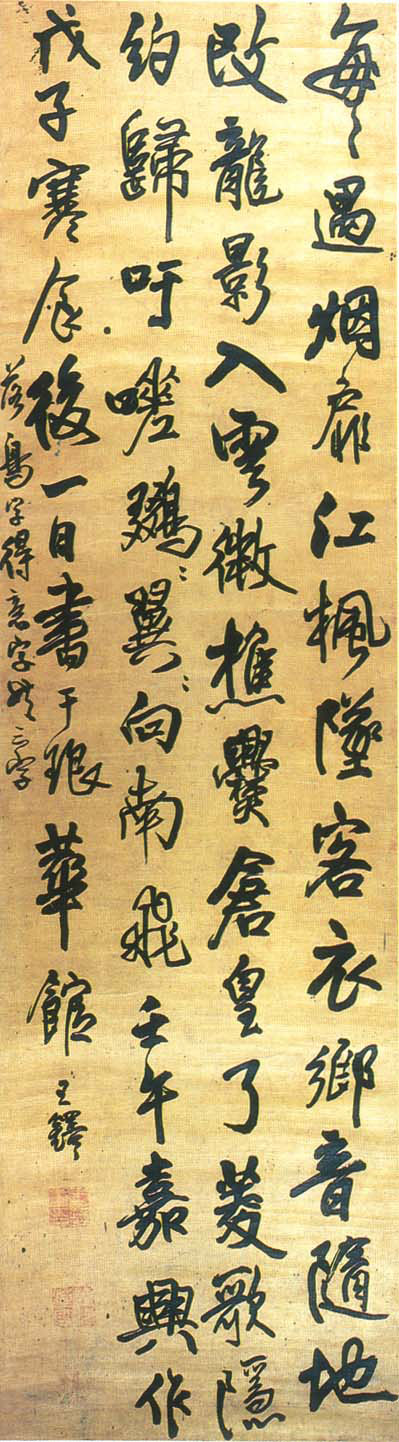 每〻遇烟扉江楓墜客衣鄉音隨地
改龍影入雲微樵爨倉皇了菱歌隱
約歸吁嗟翼〻向南飛壬午嘉興作
戊子寒食後一日書于琅華館王鐸
落鳥字得意字共三字